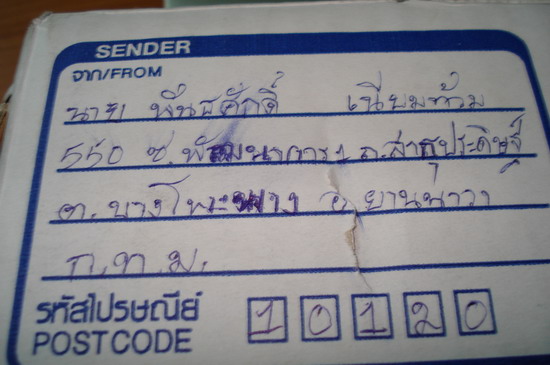 SENDER
จาก/FROM
นาย พันธศักดิ์ เนียมท้วม
550 ซ.พัฒนาการ1 ถ.สาธุประดิษฐ์
ต. บางโพงพาง อ. ยานนาวา
ก.ท.ม.
รหัสไปรษณีย์ 10120
POSTCODE